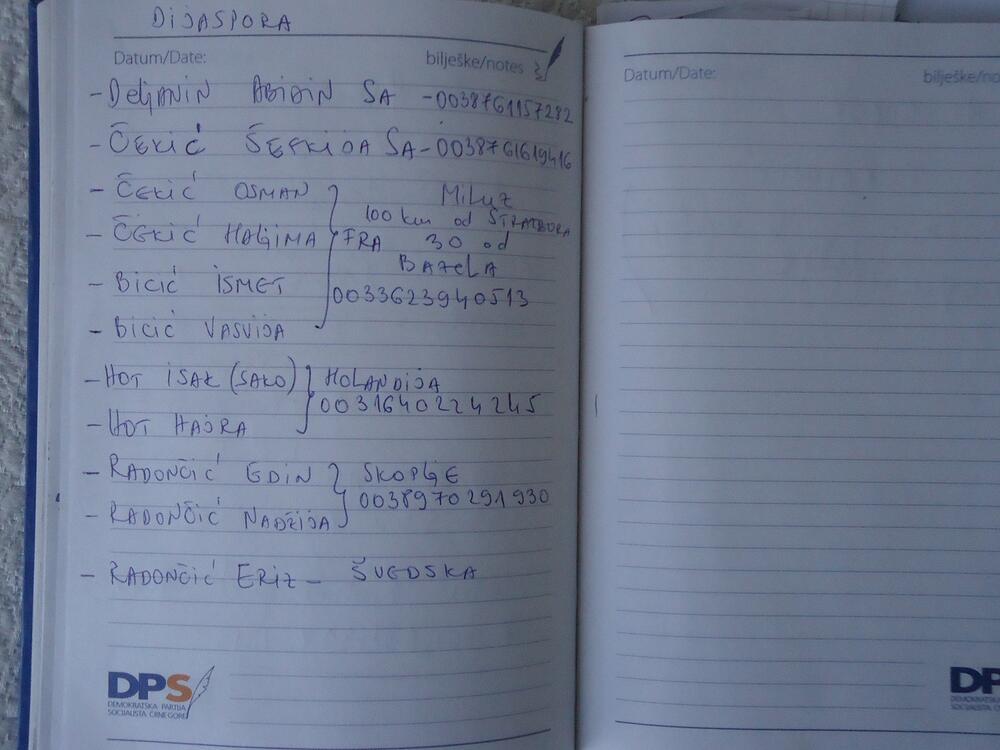 DIJASPORA
Datum/Date: bilješke/notes
- DELJANIN ABIDIN SA - 0038761157282
- ČEKIĆ ŠEFKIJA SA - 0038761619416
- ČEKIĆ OSMAN
MILUZ
100 km od ŠTRAZBURA
- ČEKIĆ HALJIMA
FRA 30 od
BAZELA
- BICIĆ ISMET
0033623940513
- BICIĆ VASVIJA
- HOT ISAK (SAKO) HOLANDIJA
0031640224245
- HOT HAJRA
- RADONČIĆ EDIN SKOPLJE
0038970291930
- RADONČIĆ NADŽIJA
- RADONČIĆ ERIZ - ŠVEDSKA
DPS
DEMOKRATSKA PARTIJA
SOCIJALISTA CRNE GORE
Datum/Date: bilješke/no
DP
DEMOKRATSKA
SOCIJALISTA C